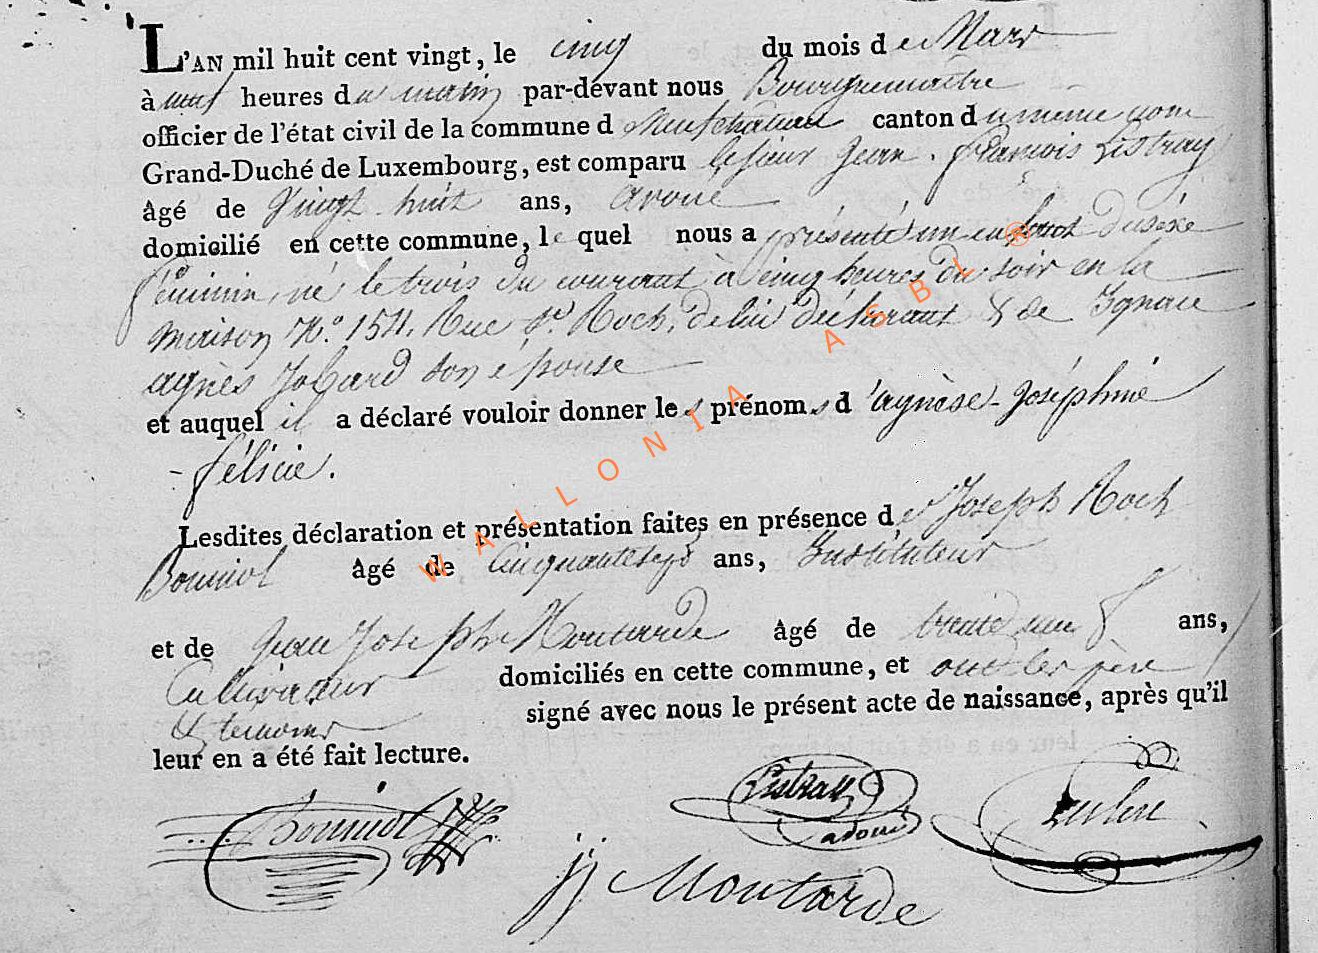 L'AN mil huit cent vingt, le cinq du mois de Mars
à neuf heures du matin par-devant nous Bourguemaitre
officier de l'état civil de la commune d Neufchateau canton du même nom
Grand-Duché de Luxembourg, est comparu le sieur Jean-François Listray
âgé de Vingt huit ans, avoué
domicilié en cette commune, le quel nous a présenté un enfant du sexe
féminin, né le trois du courant à cinq heures du soir en la
maison N.º 154, Rue St. Roch, de lui déclarant & de Ignace
agnès Jobard son épouse
et auquel il a déclaré vouloir donner les prénoms d'agnèse-Joséphine
-félicie.
Lesdites déclaration et présentation faites en présence de Joseph Roch
Bonniol âgé de Cinquante sept ans, Instituteur
et de Jean Joseph Moutarde âgé de trente un ans,
Cultivateur domiciliés en cette commune, et ont les père
& temoins signé avec nous le présent acte de naissance, après qu'il
leur en a été fait lecture.
Listray
avoué
Bonniol
jj Moutarde
WALLONIA ASBL ®